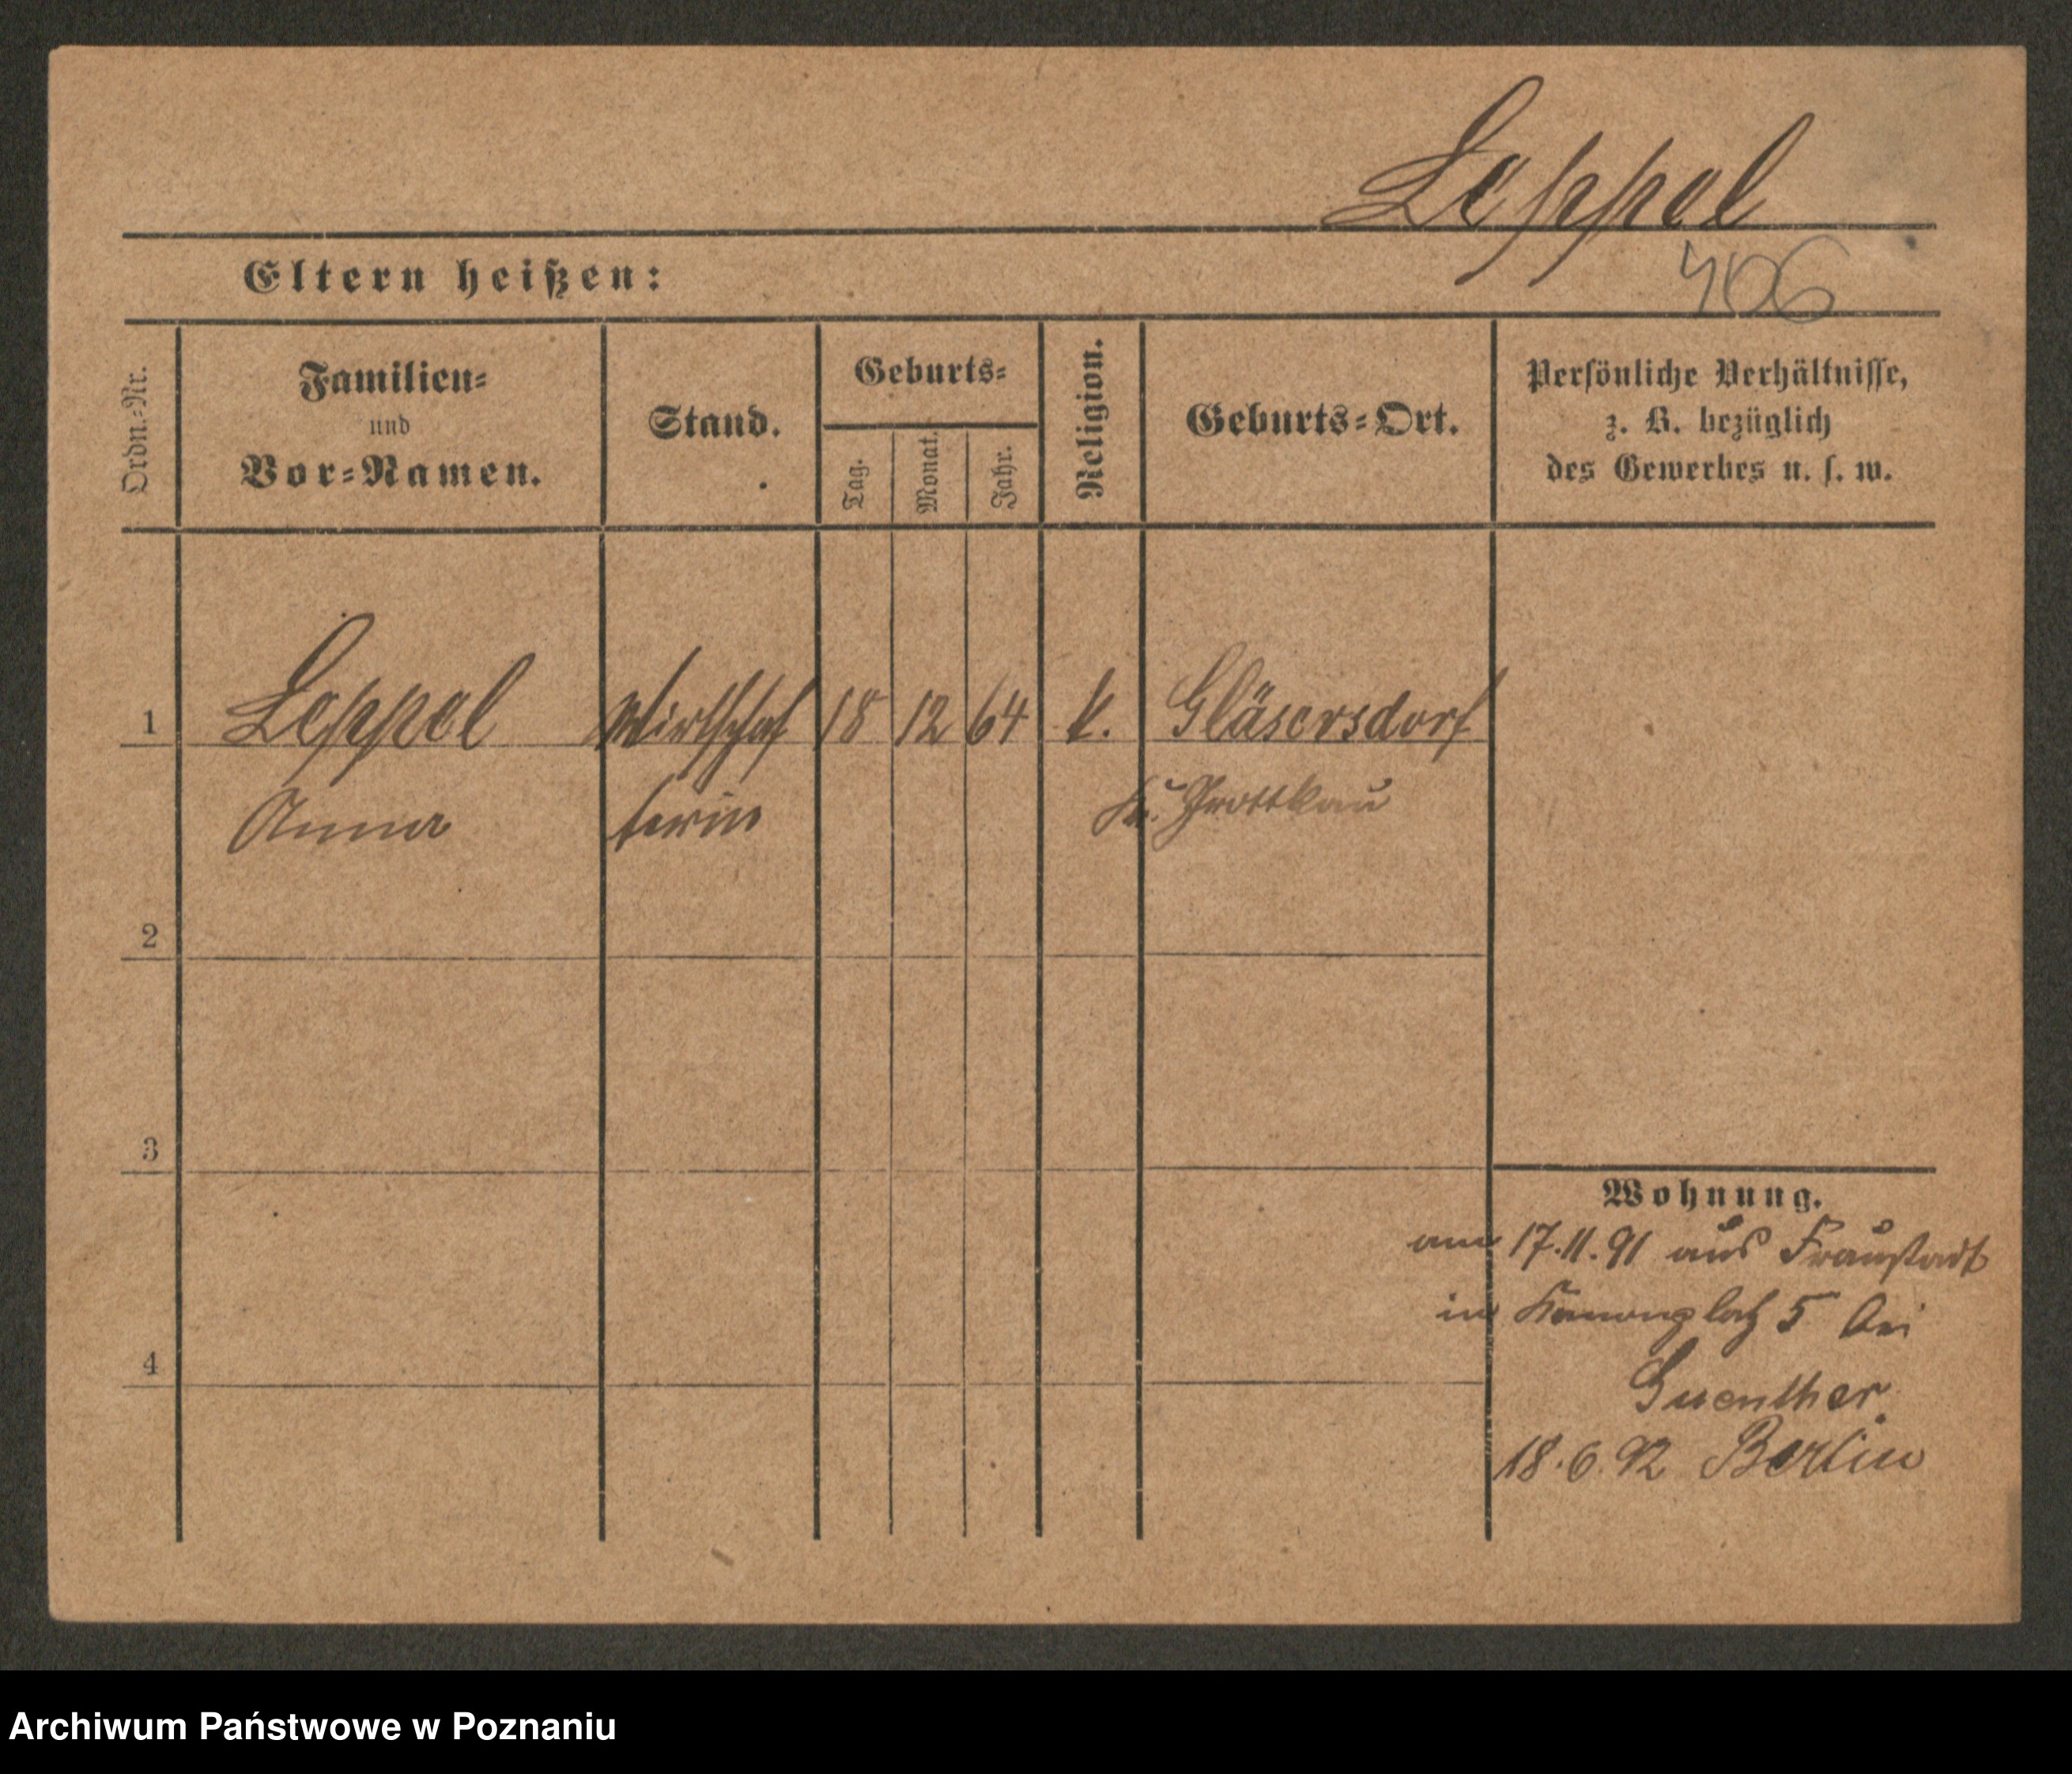 Leppel
Eltern heißen:
406
Ordn.-Nr.
Familien-
und
Vor-Namen.
Stand.
Geburts-
Tag.
Monat.
Jahr.
Religion.
Geburts-Ort.
Persönliche Verhältnisse,
z. B. bezüglich
des Gewerbes u. s. w.
1 Leppel Wirthschaf 18 12 64 k. Gläsersdorf
Anna terin Kr. Grottkau
2
3
Wohnung.
am 17.11.91 aus Fraustadt
in Kanonplatz 5 bei
4
Guenther.
18.6.92 Berlin
Archiwum Państwowe w Poznaniu